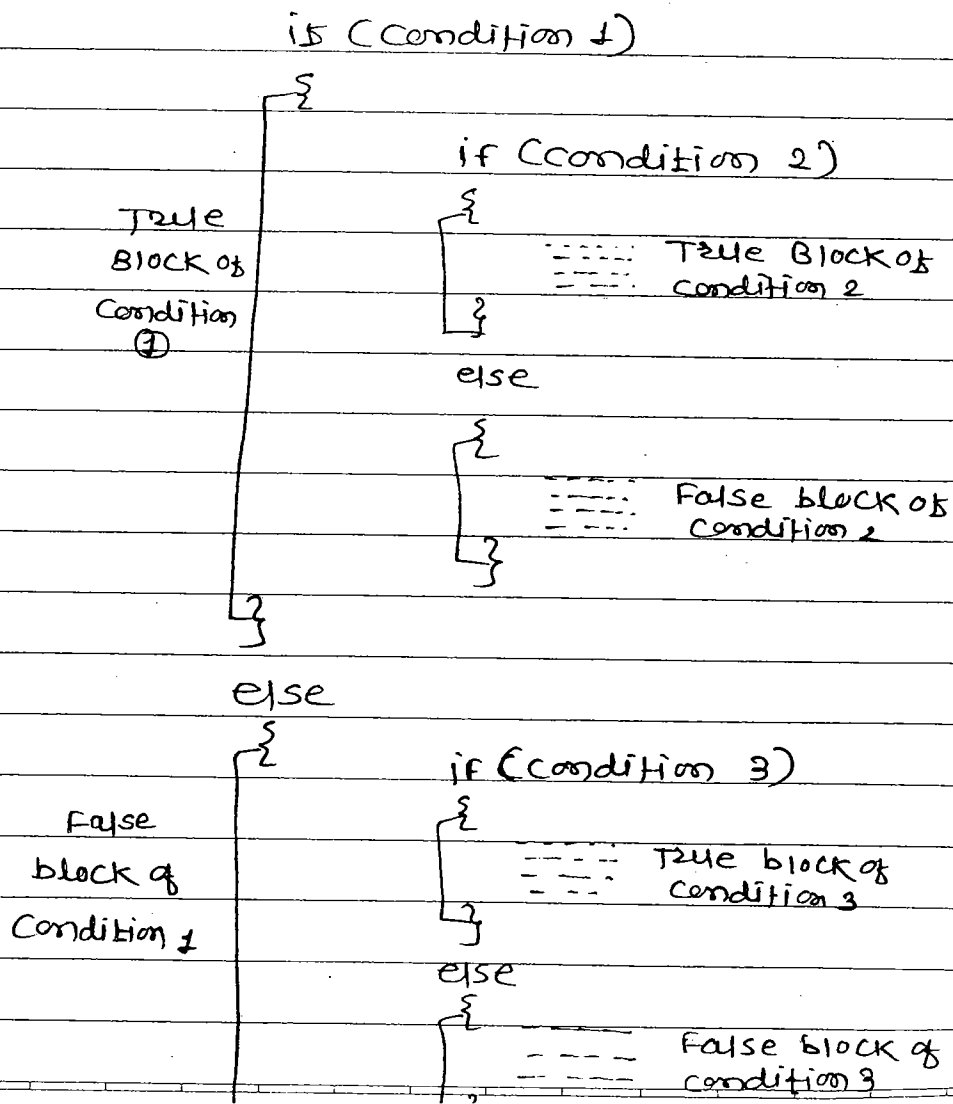 if (Condition 1)
{
if (condition 2)
{
True
Block of
Condition
①
True Block of
condition 2
}
else
{
False block of
Condition 2
}
}
else
{
if (condition 3)
{
False
block of
Condition 1
True block of
Condition 3
}
else
{
False block of
condition 3
}